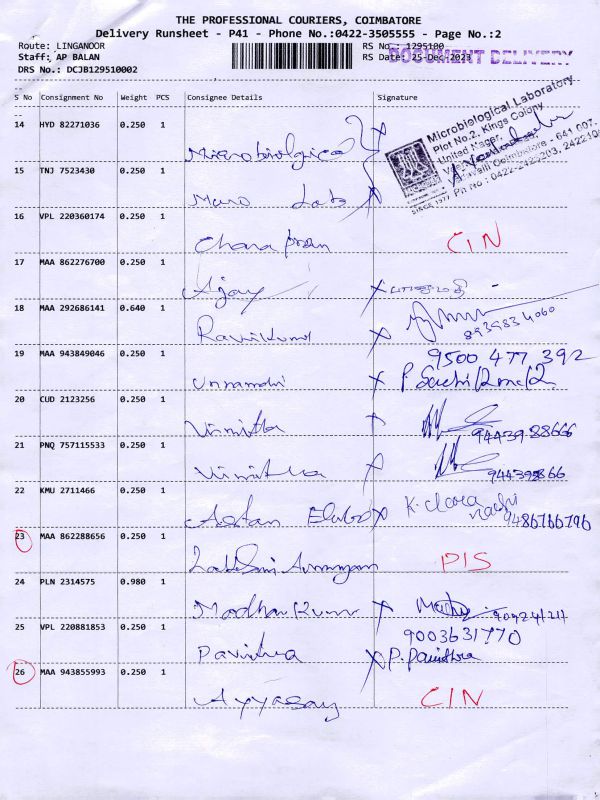 THE PROFESSIONAL COURIERS, COIMBATORE
Delivery Runsheet - P41 - Phone No.:0422-3505555 - Page No.:2
Route: LINGANOOR RS No.: 1295100
Staff: AP BALAN RS Date: 25-Dec-2023
DOCUMENT DELIVERY
DRS No.: DCJB129510002
S No Consignment No Weight PCS Consignee Details Signature
14 HYD 82271036 0.250 1 Microbiological
Microbiological Laboratory
Plot No.2, Kings Colony
United Nagar,
Coimbatore - 641 007.
SINCE 1977 Ph No : 0422-2422203, 2422
15 TNJ 7523430 0.250 1 Micro Labs
16 VPL 220360174 0.250 1 CIN
17 MAA 862276700 0.250 1 Ajay
18 MAA 292686141 0.640 1 Ravikumar 8939834060
19 MAA 943849046 0.250 1 9500 477 392
20 CUD 2123256 0.250 1 Vinnitha 9443988666
21 PNQ 757115533 0.250 1 Vinitha
22 KMU 2711466 0.250 1 K. clara 9486766796
23 MAA 862288656 0.250 1 PIS
24 PLN 2314575 0.980 1 Madhan Kumar
25 VPL 220881853 0.250 1 Pavithra 9003631770
P. Pavithra
26 MAA 943855993 0.250 1 Ayyasamy CIN